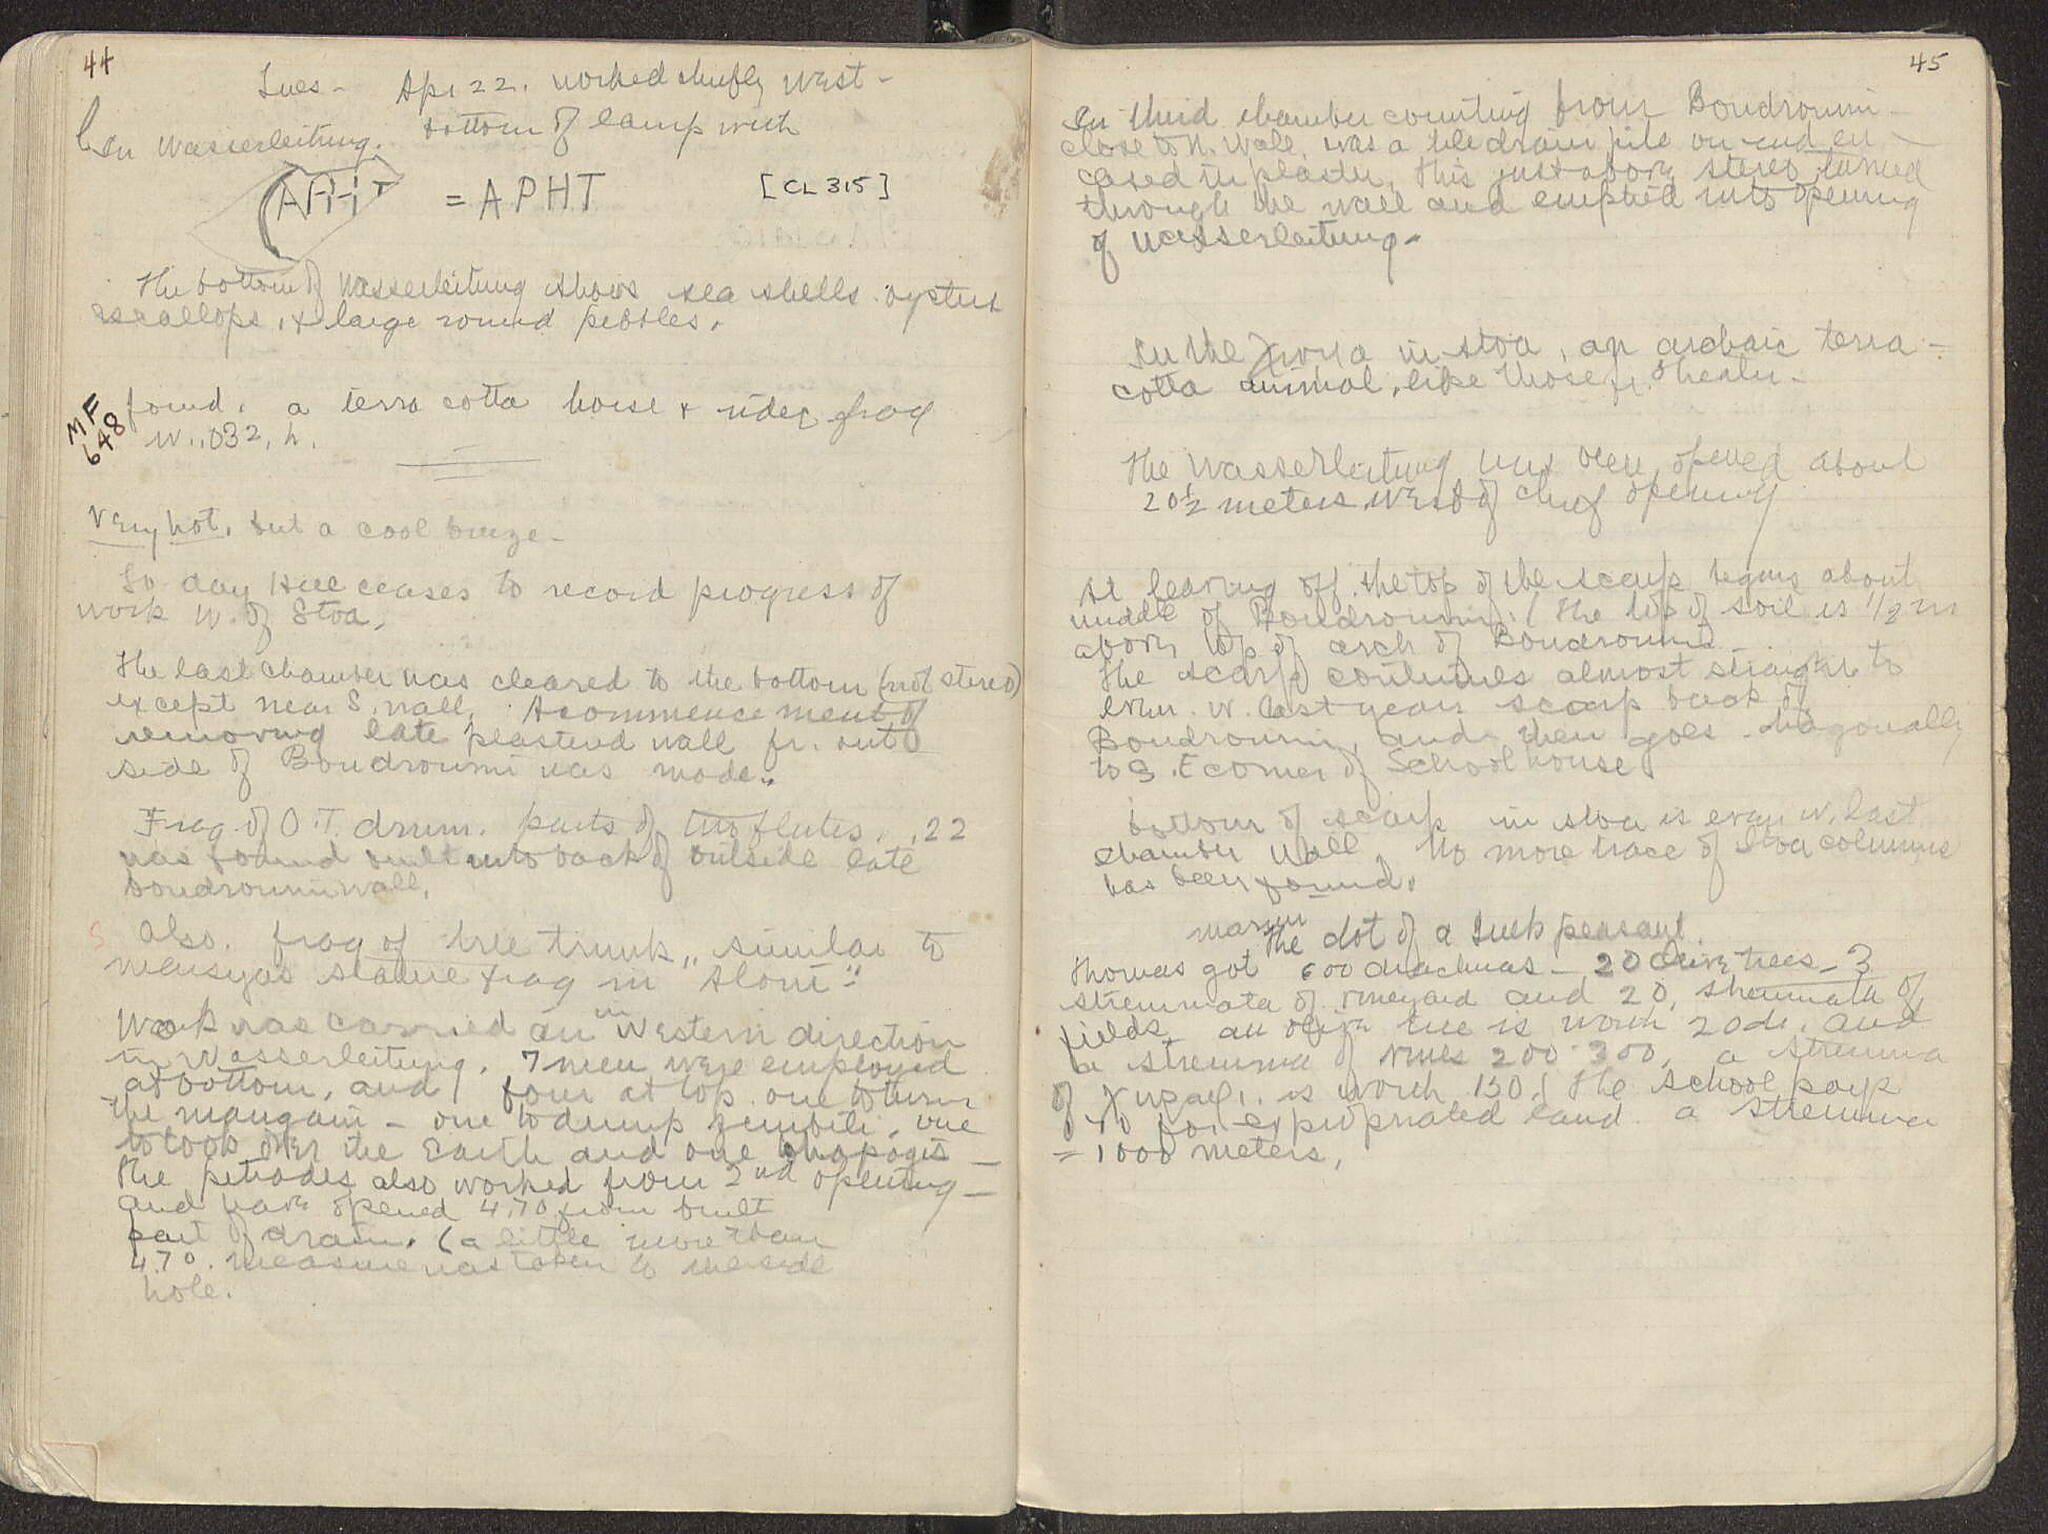 44
Tues - Apr 22. worked chiefly West -
In Wasserleitung. bottom of lamp with
APHT = APHT [CL 315]
The bottom of Wasserleitung shows sea shells. oysters
scallops, & large round pebbles.
MF 648
found. a terra cotta horse & rider frag
w. .032, h.
Very hot. but a cool breeze -
To day Hill ceases to record progress of
work W. of Stoa.
The last chamber was cleared to the bottom (not stereo)
except near S. wall. A commencement of
removing late plastered wall fr. out
side of Boudroumi was made.
Frag of O.T. drum. parts of two flutes. .22
was found built into back of outside late
boudroumi wall.
S Also. frag of tree trunk, similar to
Marsyas statue frag in "Aloni"
Work was carried on in Western direction
in Wasserleitung. 7 men were employed
at bottom, and four at top. one to turn
the mangani - one to dump zembili, one
to look over the Earth and one
The petrades also worked from 2nd opening -
and have opened 4.70 from built
part of drain. (a little more than
4.70. measure was taken to the side
hole.
45
In third chamber counting from Boudroumi -
close to N. wall, was a tile drain pipe on end en
cased in plaster. This just above stereo turned
through the wall and emptied into opening
of Wasserleitung -
In the χωμα in stoa, an archaic terra -
cotta animal, like those fr. theater -
The Wasserleitung has been opened about
20 1/2 meters West of chief opening
At leaving off. the top of the scarp begins about
middle of Boudroumi. (The top of soil is 1/2 m
above top of arch of Boudroumi
The scarp continues almost straight to
even w. last year scarp back of
Boudroumi, and then goes diagonally
to S.E corner of School house
bottom of scarp in stoa is even w. last
chamber wall. No more trace of Stoa columns
has been found.
The dot of a Greek peasant.
Thomas got 600 drachmas - 20 Olive trees - 3
stremmata of vineyard and 20, stremmata of
fields. an olive tree is worth 20 dr. and
a stremma of vines 200-300, a stremma
of χωραφι. is worth 150. (The School pays
70 for expropriated land. a stremma
= 1000 meters,